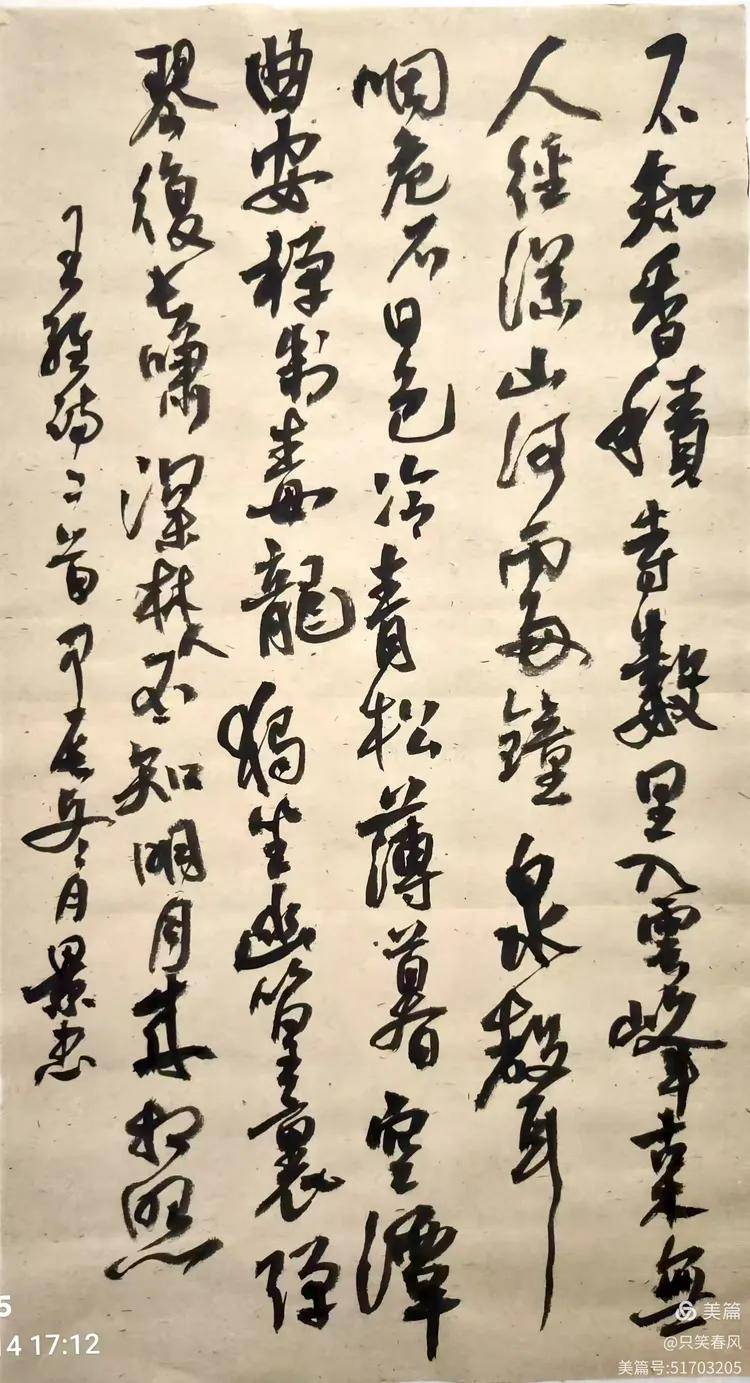 不知香積寺數里入雲峰古木無
人徑深山何處鐘泉聲
咽危石日色冷青松薄暮空潭
曲安禪制毒龍獨坐幽篁裏彈
琴復長嘯深林人不知明月來相照
王維詩二首甲辰冬月景
5
14 17:12
美篇
@只笑春风
美篇号:51703205